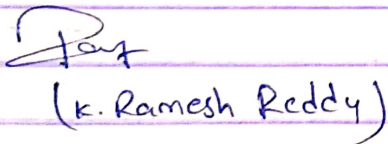 (K. Ramesh Reddy)